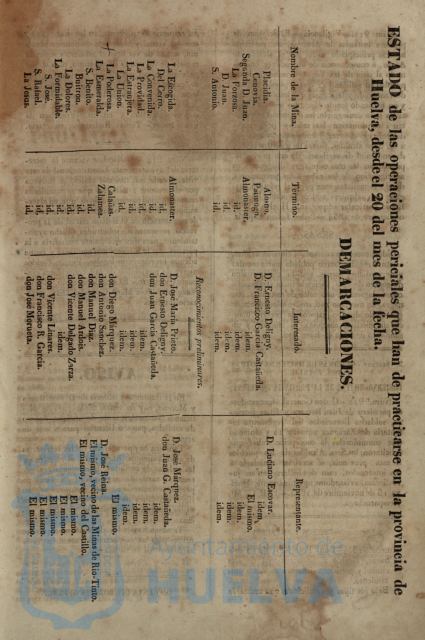 ESTADO de las operaciones periciales que han de practicarse en la provincia de
Huelva, desde el 20 del mes de la fecha.
DEMARCACIONES.
Nombre de la Mina. Término. Interesado. Representante.
Placidia. Alosno. D. Ernesto Deligny. D. Ludimo Escovar.
Cenovia. Paimogo. D. Francisco Garcia Castañeda. idem.
Segunda D. Juan. Almonaster. idem. El mismo.
La Forzosa. id. idem. idem.
D. Juan. id. idem. idem.
S. Antonio. id. idem. idem.
Reconocimientos preliminares.
La Escogida. Almonaster. D. José María Prieto. D. José Marquez.
Del Cerro. id. don Ernesto Deligny. don Juan G. Castañeda.
La Convenida. id. don Juan Garcia Castañeda. idem.
La Provided. id. idem. idem.
La Estranjera. id. idem. idem.
La Union. id. idem. idem.
La Poderosa. Calañas. don Diego Marquez. El mismo.
La Esmeralda. Zalamea. don Antonio Sanchez. D. José Reina.
S. Benito. id. don Manuel Diaz. El mismo, vecino de las Minas de Rio-Tinto.
Buitron. id. don Manuel Ardois. El mismo, vecino del Castillo.
La Dolores. id. don Vicente Delgado Zorza. El mismo.
La Formidable. id. idem. El mismo.
S. José. id. don Vicente Linares. El mismo.
S. Rafael. id. don Francisco R. Garcia. El mismo.
La Jesus. id. don José El mismo.
Ayuntamiento de
HUELVA